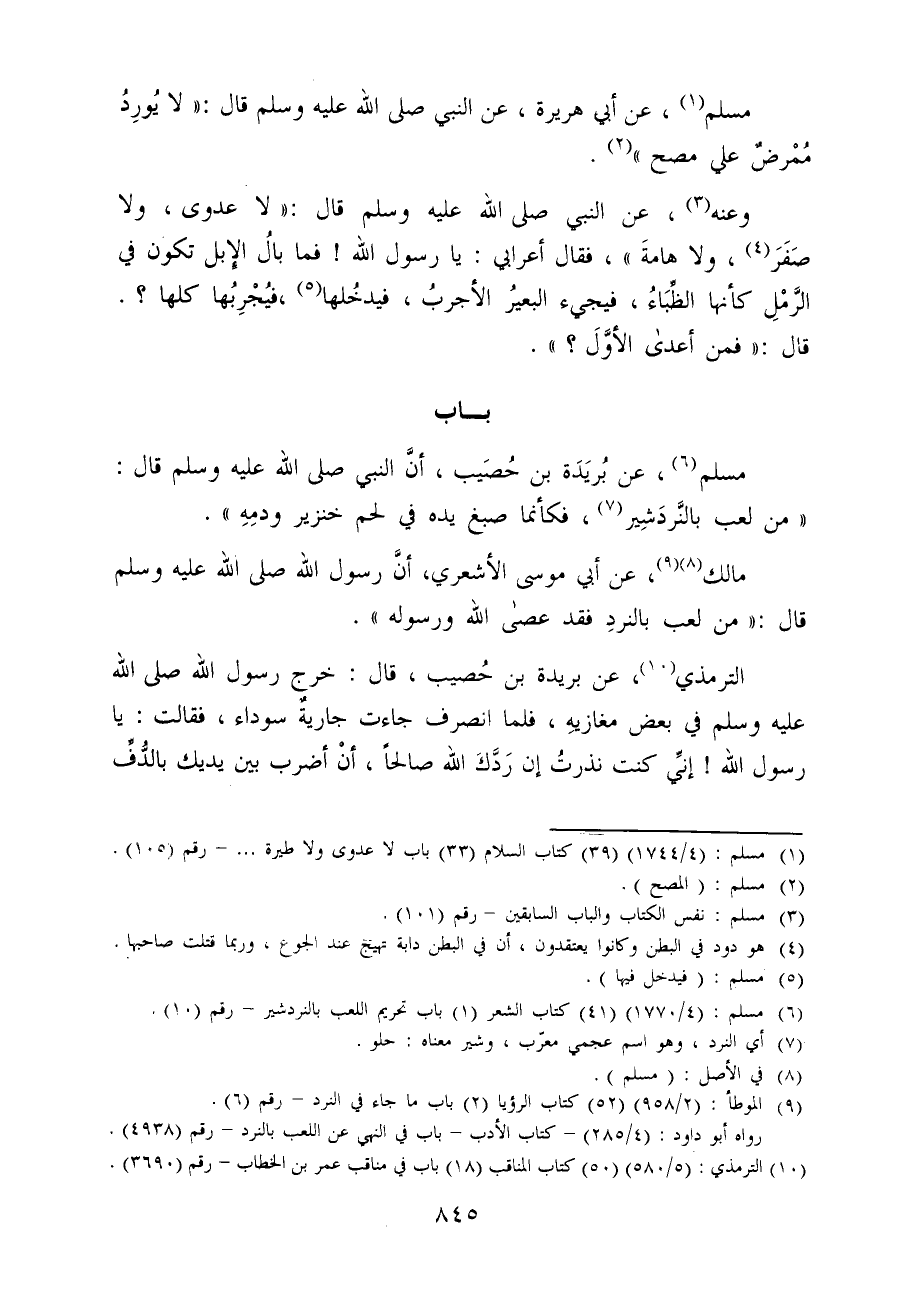 مسلم(١) ، عن أبي هريرة ، عن النبي صلى الله عليه وسلم قال :« لا يُورِدُ
مُمْرضٌ علي مصح »(٢) .
وعنه(٣) ، عن النبي صلى الله عليه وسلم قال :« لا عدوى ، ولا
صَفَرَ(٤) ، ولا هامةَ » ، فقال أعرابي : يا رسول الله ! فما بالُ الإبل تكون في
الرَّمْلِ كأنها الظِّبَاءُ ، فيجيء البعيرُ الأجربُ ، فيدخُلها(٥) ،فيُجْرِبُها كلها ؟ .
قال :« فمن أعدىٰ الأوَّلَ ؟ » .
بـــاب
مسلم(٦) ، عن بُريَدَة بن حُصَيب ، أنَّ النبي صلى الله عليه وسلم قال :
« من لعب بالنَّردَشِير(٧) ، فكأنما صبغ يده في لحم خنزير ودمِهِ » .
مالك(٨)(٩)، عن أبي موسى الأشعري، أنَّ رسول الله صلى الله عليه وسلم
قال :« من لعب بالنردِ فقد عصىٰ الله ورسوله » .
الترمذي(١٠)، عن بريدة بن حُصيب ، قال : خرج رسول الله صلى الله
عليه وسلم في بعض مغازيهِ ، فلما انصرف جاءت جاريةٌ سوداء ، فقالت : يا
رسول الله ! إنيِّ كنت نذرتُ إن رَدَّكَ الله صالحاً ، أنْ أضرب بين يديك بالدُّفِّ
(١) مسلم : (١٧٤٤/٤) (٣٩) كتاب السلام (٣٣) باب لا عدوى ولا طيرة ... – رقم (١٠٥) .
(٢) مسلم : ( المصح ) .
(٣) مسلم : نفس الكتاب والباب السابقين – رقم (١٠١) .
(٤) هو دود في البطن وكانوا يعتقدون ، أن في البطن دابة تهيج عند الجوع ، وربما قتلت صاحبها .
(٥) مسلم : ( فيدخل فيها ) .
(٦) مسلم : (١٧٧٠/٤) (٤١) كتاب الشعر (١) باب تحريم اللعب بالنردشير – رقم (١٠) .
(٧) أي النرد ، وهو اسم عجمي معرّب ، وشير معناه : حلو .
(٨) في الأصل : ( مسلم ) .
(٩) الموطأ : (٩٥٨/٢) (٥٢) كتاب الرؤيا (٢) باب ما جاء في النرد – رقم (٦) .
رواه أبو داود : (٢٨٥/٤) – كتاب الأدب – باب في النهي عن اللعب بالنرد – رقم (٤٩٣٨) .
(١٠) الترمذي : (٥٨٠/٥) (٥٠) كتاب المناقب (١٨) باب في مناقب عمر بن الخطاب – رقم (٣٦٩٠) .
٨٤٥